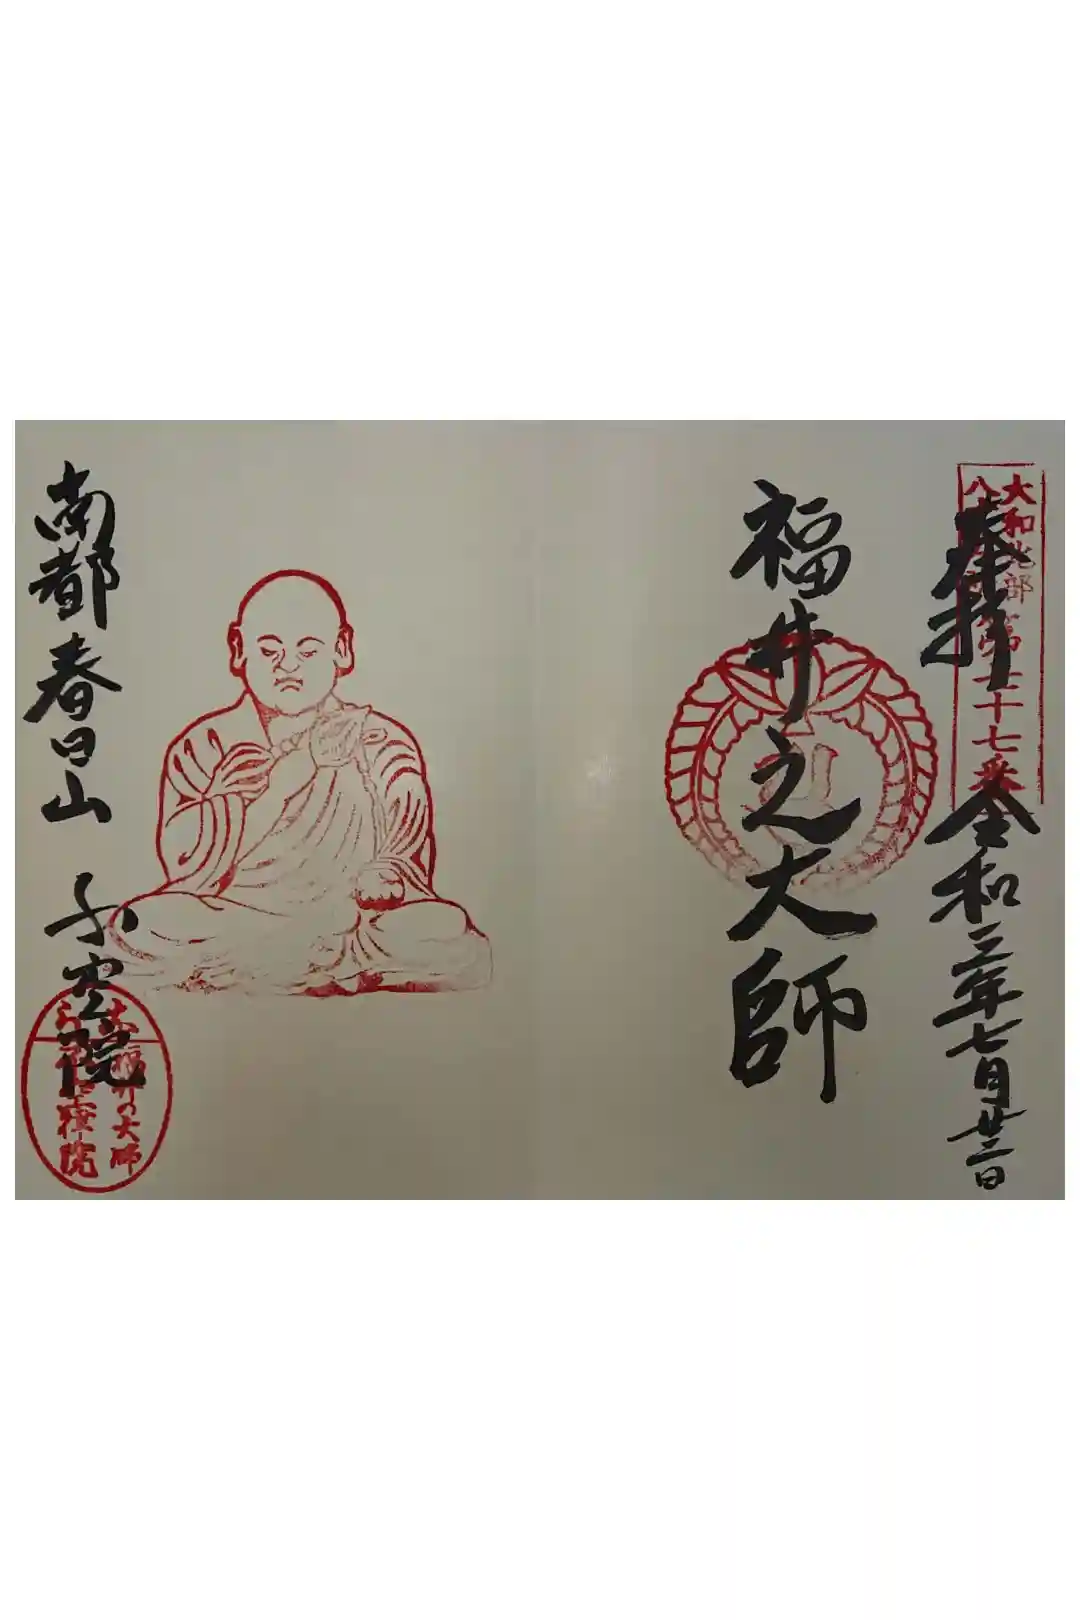 奉拝
令和三年七月廿二日
大和北部
八十八
第七十七番
福井之大師
南都春日山 不空院
福井の大師
不空院